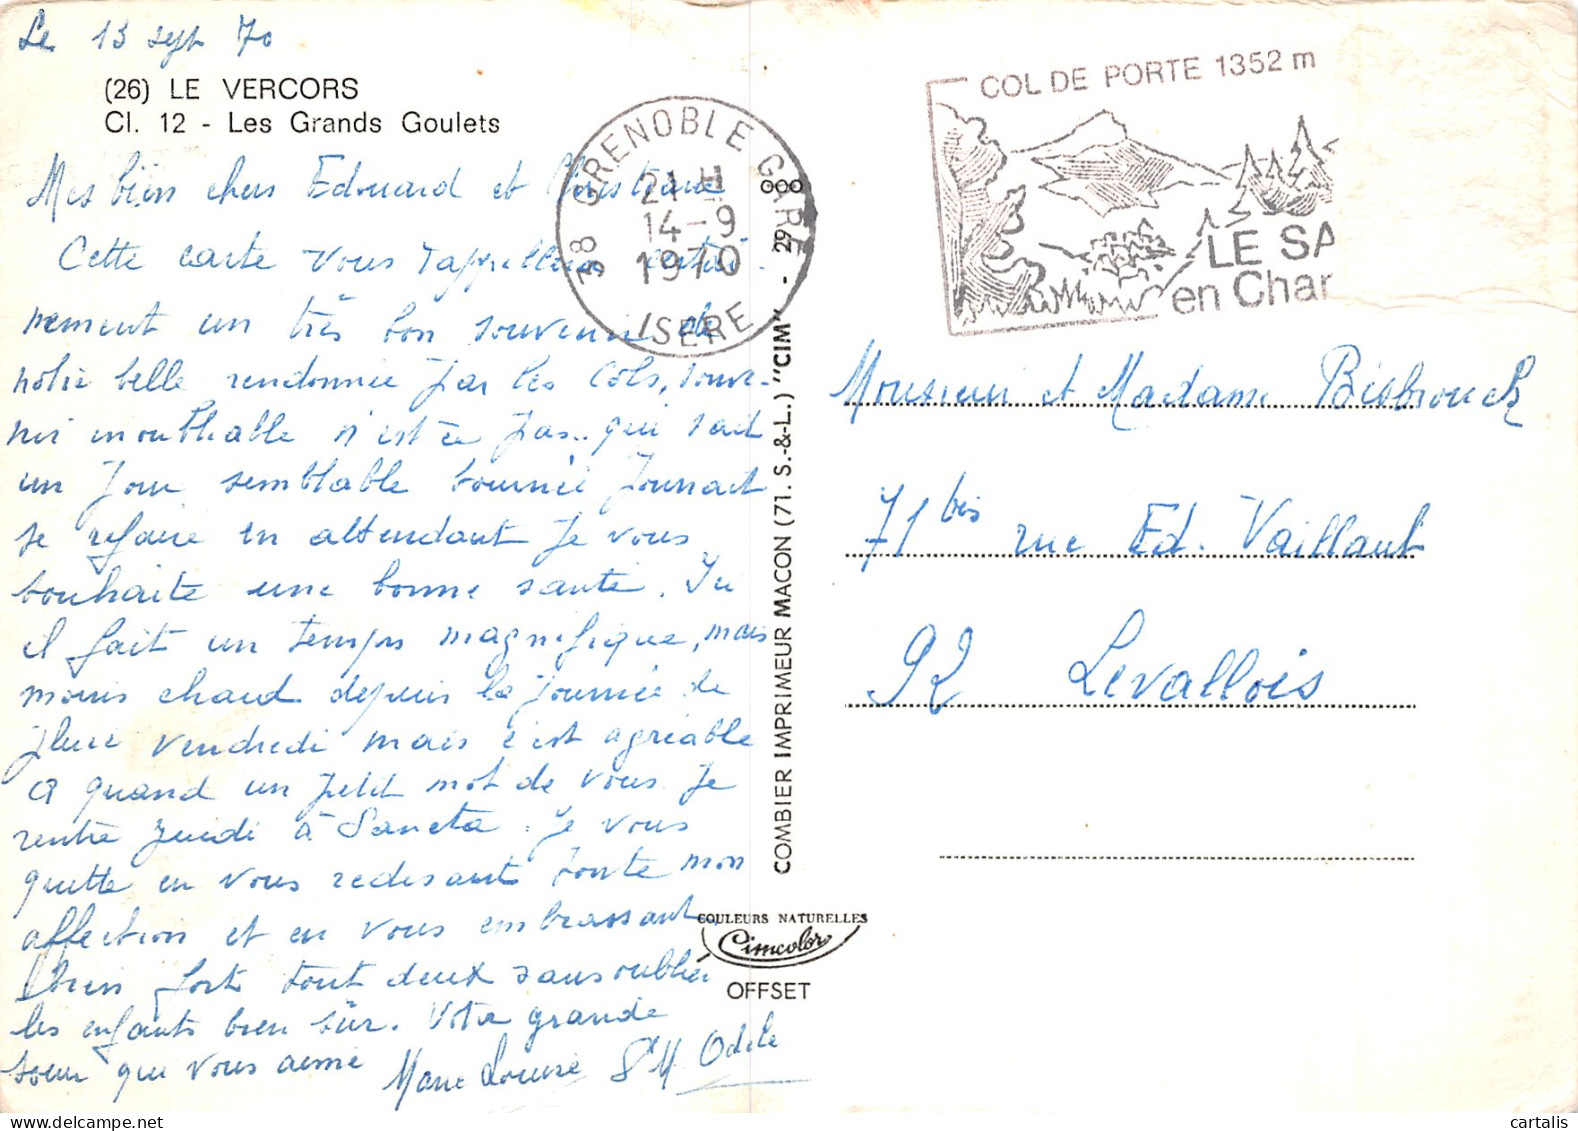 Le 13 sept 70
(26) LE VERCORS
Cl. 12 - Les Grands Goulets
Mes bien chers Edouard et Christiane
Cette carte vous rappellera certai-
nement un très bon souvenir de
notre belle randonnée par les Cols, souve-
nir inoubliable n'est ce pas.. qui sait
un jour semblable tournée pourrait
se refaire en attendant je vous
souhaite une bonne santé. Ici
il fait un temps magnifique, mais
moins chaud depuis la journée de
pluie vendredi mais c'est agréable
A quand un petit mot de vous. Je
rentre jeudi à Sancta. Je vous
quitte en vous redisant toute mon
affection et en vous embrassant
bien fort tout deux sans oublier
les enfants bien sûr. Votre grande
soeur qui vous aime
Marie Louise Sr M. Odile
38 GRENOBLE GARE
21 H
14-9
1970
ISERE
COL DE PORTE 1352 m
LE SA
en Char
COMBIER IMPRIMEUR MACON (71. S.-&-L.) "CIM" - 29
COULEURS NATURELLES
Cimcolor
OFFSET
Monsieur et Madame Bisbrouck
71 bis rue Ed. Vaillant
92 Levallois
© cartalis
delcampe.net